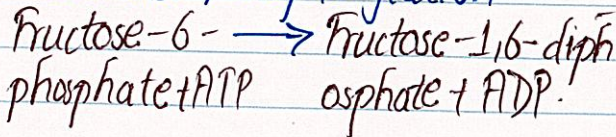 Fructose-6- → Fructose-1,6-diph
phosphate+ATP osphate + ADP.